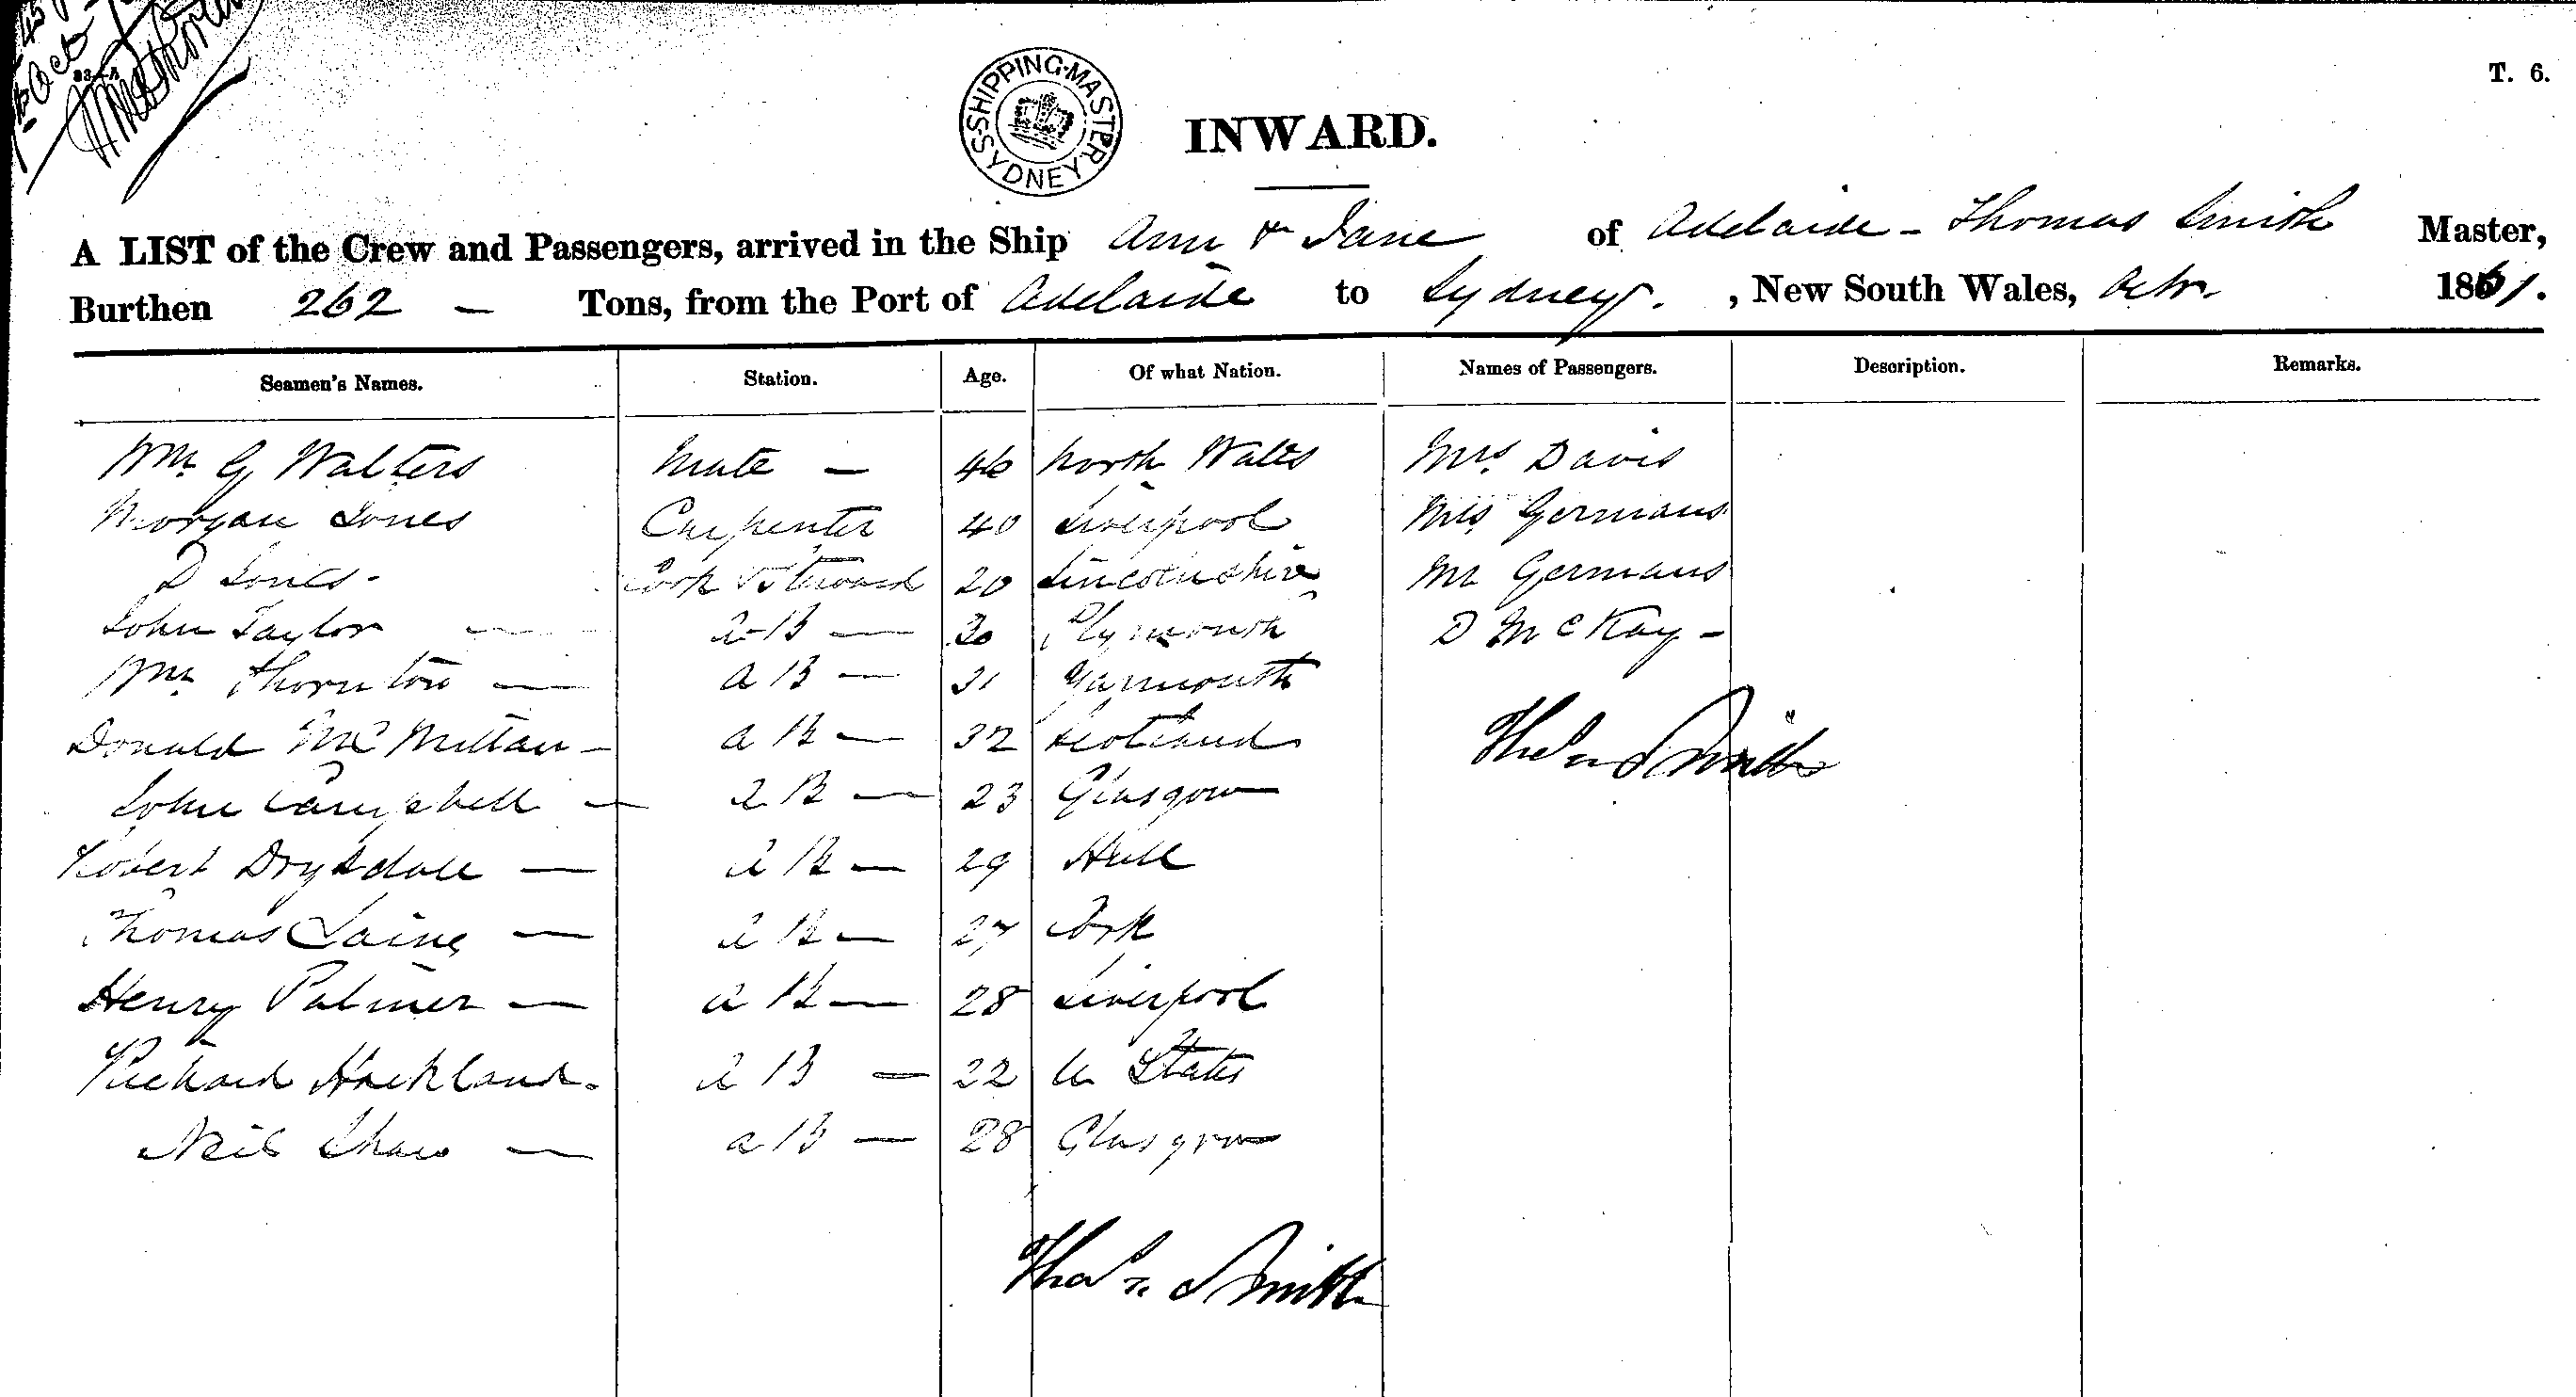 T. 6.
SHIPPING MASTER SYDNEY
INWARD.
A LIST of the Crew and Passengers, arrived in the Ship Ann & Jane of Adelaide - Thomas Smith Master,
Burthen 262 — Tons, from the Port of Adelaide to Sydney. , New South Wales, Octr 1861.
Seamen's Names. Station. Age. Of what Nation. Names of Passengers. Description. Remarks.
Wm. G Walters Mate — 46 North Wales Mrs. Davis
Morgan Jones Carpenter 40 Liverpool Mrs Germans
D Jones - Cook & Steward 20 Lincolnshire Mr Germans
John Taylor — A B — 30 Plymouth D McKay -
Wm. Thornton — A B — 31 Yarmouth
Donald McMillan — A B — 32 Scotland
Thos Smith
John Campbell — A B — 23 Glasgow
Robert Drysdale — A B — 29 Hull
Thomas — A B — 27 Cork
Henry Palmer — A B — 28 Liverpool
Richard Hackland. A B — 22 U States
Neil Shaw — A B — 28 Glasgow
Thos Smith